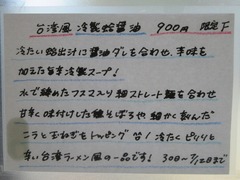 台湾風 冷製蛤醤油 900円 限定下
冷たい蛤出汁に醤油ダレを合わせ、辛味を
加えた旨辛冷製スープ!
水で締めたフスマ入り細ストレート麺を合わせ
甘辛く味付けした種そぼろや細かく刻んだ
ニラと玉ねぎをトッピング♡!冷たくピリッと
辛い台湾ラーメン風の一品です! 30日~7/12日まで